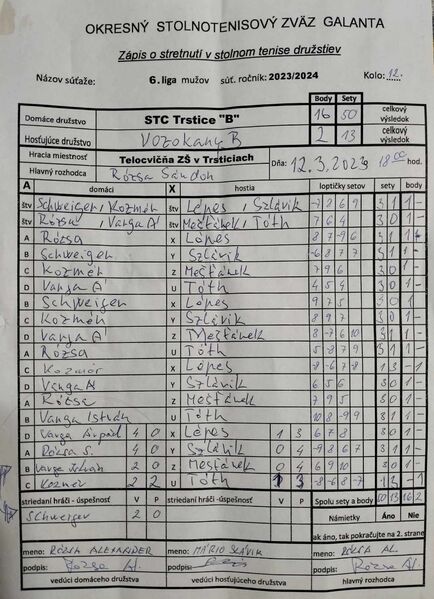 OKRESNÝ STOLNOTENISOVÝ ZVÄZ GALANTA
Zápis o stretnutí v stolnom tenise družstiev
Názov súťaže: 6. liga mužov súť. ročník: 2023/2024 Kolo: 12.
Body Sety
Domáce družstvo STC Trstice "B" 16 50 celkový výsledok
Hosťujúce družstvo Vozokany B 2 13 celkový výsledok
Hracia miestnosť Telocvičňa ZŠ v Trsticiach Dňa: 12.3.2023 18 00 hod.
Hlavný rozhodca Rózsa Sándor
A domáci X hostia loptičky setov sety body
štv Schweiger, Kozmér štv Lépes, Szlávik -7 8 6 9 3 1 1 -
štv Rózsa, Varga Á štv Mešťánek, Tóth 7 6 4 3 0 1 -
A Rózsa X Lépes 8 7 -9 6 3 1 1 -
B Schweiger Y Szlávik -6 8 7 7 3 1 1 -
C Kozmér Z Mešťánek 7 9 6 3 0 1 -
D Varga Á U Tóth 4 5 4 3 0 1 -
B Schweiger X Lépes 9 7 5 3 0 1
C Kozmér Y Szlávik 8 -9 8 9 3 1 1 -
D Varga Á Z Mešťánek 8 -7 6 10 3 1 1 -
A Rózsa U Tóth 5 -8 7 9 3 1 1 -
C Kozmér X Lépes -8 -6 7 8 1 3 - 1
D Varga Á Y Szlávik 6 5 6 3 0 1 -
A Rózsa Z Mešťánek 7 9 5 3 0 1 -
B Varga István U Tóth 10 8 -9 9 3 1 1 -
D Varga Árpád 4 0 X Lépes 1 3 6 7 8 3 0 1 -
A Rózsa S. 4 0 Y Szlávik 0 4 -9 8 6 7 3 1 1 -
B Varga István 2 0 Z Mešťánek 0 4 6 9 10 3 0 1 -
C Kozmér 2 2 U Tóth 1 3 -8 -6 8 -7 1 3 - 1
striedaní hráči - úspešnosť V P striedaní hráči - úspešnosť V P Spolu sety a body 50 13 16 2
Schweiger 2 0 Námietky Áno Nie
ak áno, tak pokračujte na 2. strane
meno: RÓZSA ALEXANDER meno: MÁRIO SLÁVIK meno: RÓZSA AL.
podpis: Rózsa Al. podpis: podpis: Rózsa Al.
vedúci domáceho družstva vedúci hosťujúceho družstva hlavný rozhodca